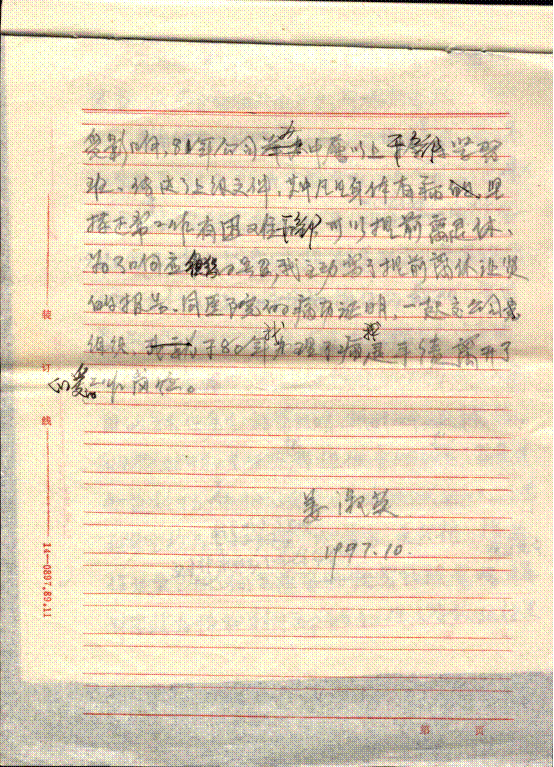 受影响，80年公司举办中层以上干部学习
班，传达了上级文件，其中凡身体有病的，坚
持正常工作有困难干部可以提前离退休，
为了响应号召，我主动写了提前离休让贤
的报告，同医院的病历证明，一起交公司党
组织，于80年我办理了病退手续离开了
心爱的工作岗位。
姜淑英
1997.10.
装
订
线
14—0897.89.11
第 页